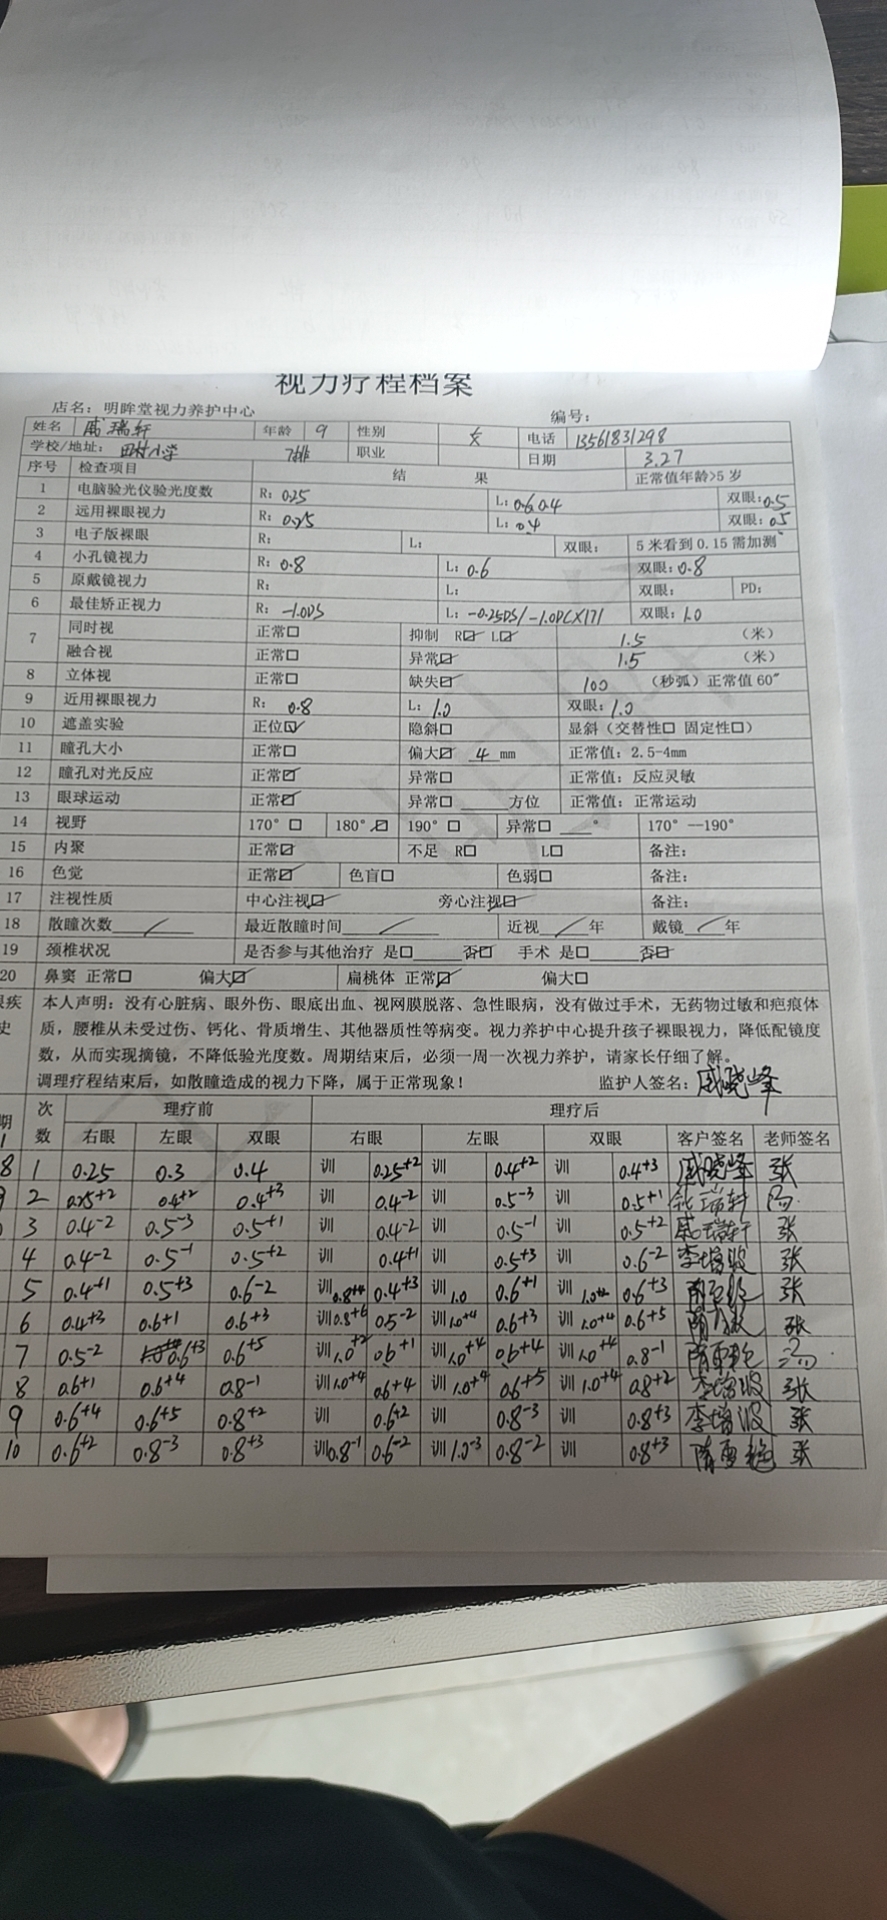 视力疗程档案
店名：明眸堂视力养护中心 编号：
姓名 戚瑞轩 年龄 9 性别 女 电话 13561831298
学校/地址： 田村小学 7排 职业 日期 3.27
序号 检查项目 结 果 正常值年龄>5岁
1 电脑验光仪验光度数 R：0.25 L：0.4 双眼：0.5
2 远用裸眼视力 R：0.25 L：0.4 双眼：0.5
3 电子版裸眼 R： L： 双眼： 5米看到0.15需加测
4 小孔镜视力 R：0.8 L：0.6 双眼：0.8
5 原戴镜视力 R： L： 双眼： PD：
6 最佳矫正视力 R：-1.0DS L：-0.25DS/-1.0DCX171 双眼：1.0
7 同时视 正常□ 抑制 R☑ L☑ 1.5 （米）
融合视 正常□ 异常☑ 1.5 （米）
8 立体视 正常□ 缺失☑ 100 （秒弧）正常值60″
9 近用裸眼视力 R： 0.8 L：1.0 双眼：1.0
10 遮盖实验 正位☑ 隐斜□ 显斜（交替性□ 固定性□）
11 瞳孔大小 正常□ 偏大☑ 4 mm 正常值：2.5-4mm
12 瞳孔对光反应 正常☑ 异常□ 正常值：反应灵敏
13 眼球运动 正常☑ 异常□ 方位 正常值：正常运动
14 视野 170°□ 180°☑ 190°□ 异常□ ° 170°—190°
15 内聚 正常☑ 不足 R□ L□ 备注：
16 色觉 正常☑ 色盲□ 色弱□ 备注：
17 注视性质 中心注视☑ 旁心注视☑ 备注：
18 散瞳次数 / 最近散瞳时间 / 近视 / 年 戴镜 / 年
19 颈椎状况 是否参与其他治疗 是□ 否☑ 手术 是□ 否☑
20 鼻窦 正常□ 偏大☑ 扁桃体 正常☑ 偏大□
眼疾 本人声明：没有心脏病、眼外伤、眼底出血、视网膜脱落、急性眼病，没有做过手术，无药物过敏和疤痕体
史 质，腰椎从未受过伤、钙化、骨质增生、其他器质性等病变。视力养护中心提升孩子裸眼视力，降低配镜度
数，从而实现摘镜，不降低验光度数。周期结束后，必须一周一次视力养护，请家长仔细了解。
调理疗程结束后，如散瞳造成的视力下降，属于正常现象！ 监护人签名：戚晓峰
期 次数 理疗前 理疗后
右眼 左眼 双眼 右眼 左眼 双眼 客户签名 老师签名
8 1 0.25 0.3 0.4 训 0.25+2 训 0.4+2 训 0.4+3 戚晓峰 张
9 2 0.25+2 0.4+2 0.4+3 训 0.4-2 训 0.5-3 训 0.5+1 戚瑞轩 冯
3 0.4-2 0.5-3 0.5+1 训 0.4-2 训 0.5-1 训 0.5+2 戚瑞轩 张
4 0.4-2 0.5-1 0.5+2 训 0.4+1 训 0.5+3 训 0.6-2 张
5 0.4+1 0.5+3 0.6-2 训0.8+4 0.4+3 训1.0 0.6+1 训1.0+2 0.6+3 张
6 0.4+3 0.6+1 0.6+3 训0.8+6 0.5-2 训1.0+4 0.6+3 训1.0+4 0.6+5 张
7 0.5-2 0.6+3 0.6+5 训1.0+2 0.6+1 训1.0+4 0.6+4 训1.0+4 0.8-1 冯
8 0.6+1 0.6+4 0.8-1 训1.0+4 0.6+4 训1.0+4 0.6+5 训1.0+4 0.8+2 张
9 0.6+4 0.6+5 0.8+2 训 0.6+2 训 0.8-3 训 0.8+3 张
10 0.6+2 0.8-3 0.8+3 训0.8-1 0.6-2 训1.0-3 0.8-2 训 0.8+3 张